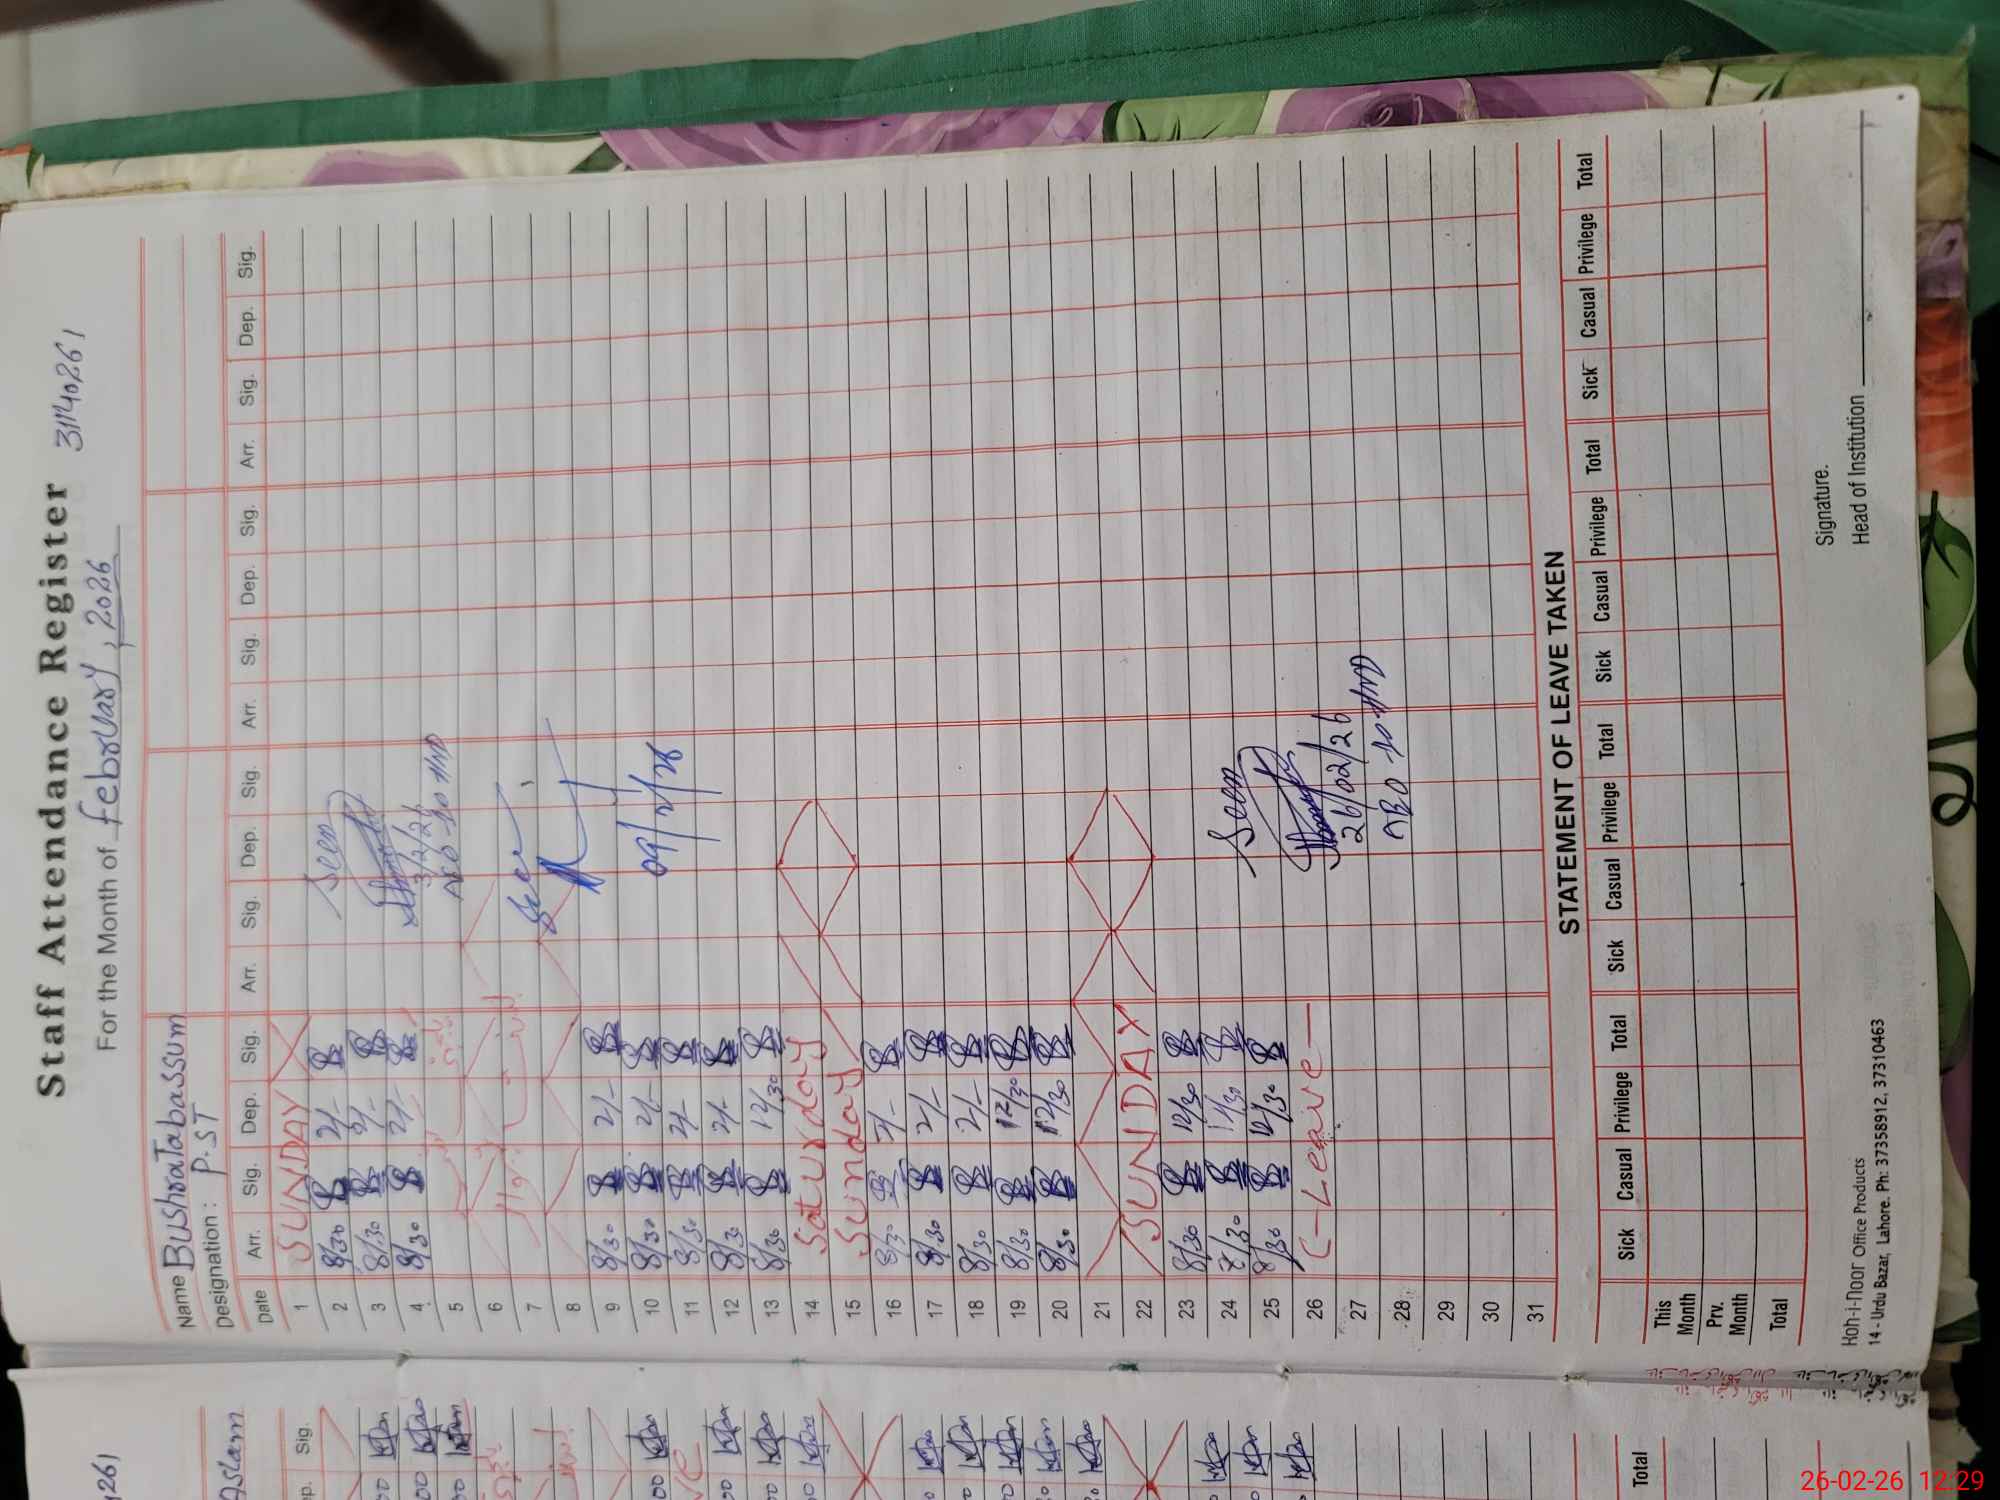 Staff Attendance Register 31140261
For the Month of February, 2026
Name Bushra Tabassum
Designation: P.ST
Date Arr. Sig. Dep. Sig. Arr. Sig. Dep. Sig. Arr. Sig. Dep. Sig. Arr. Sig. Dep. Sig.
1 SUNDAY
2 8/30 2/- Seen
3 8/30 2/-
4 8/30 2/- 3/2/26
5
6
7
8
9 8/30 2/-
10 8/30 2/- 09/2/26
11 8/30 2/-
12 8/30 2/-
13 8/30 12/30
14 Saturday
15 Sunday
16 8/30 2/-
17 8/30 2/-
18 8/30 2/-
19 8/30 12/30
20 8/30 12/30
21
22 SUNDAY
23 8/30 12/30
24 8/30 12/30 Seen
25 8/30 12/30
26 C-Leave-
27 26/02/26
28
29
30
31
STATEMENT OF LEAVE TAKEN
Sick Casual Privilege Total Sick Casual Privilege Total Sick Casual Privilege Total Sick Casual Privilege Total
This Month
Prv. Month
Total
Koh-i-noor Office Products
14 - Urdu Bazar, Lahore. Ph: 37358912, 37310463
Signature.
Head of Institution
Aslam
Sig.
Total
26-02-26 12:29